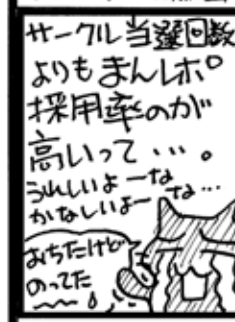 サークル当選回数
よりもまんレポ
採用率のが
高いって・・・。
うれしいよーな
かなしいよーな・・・
おちたけど
のってた
～～